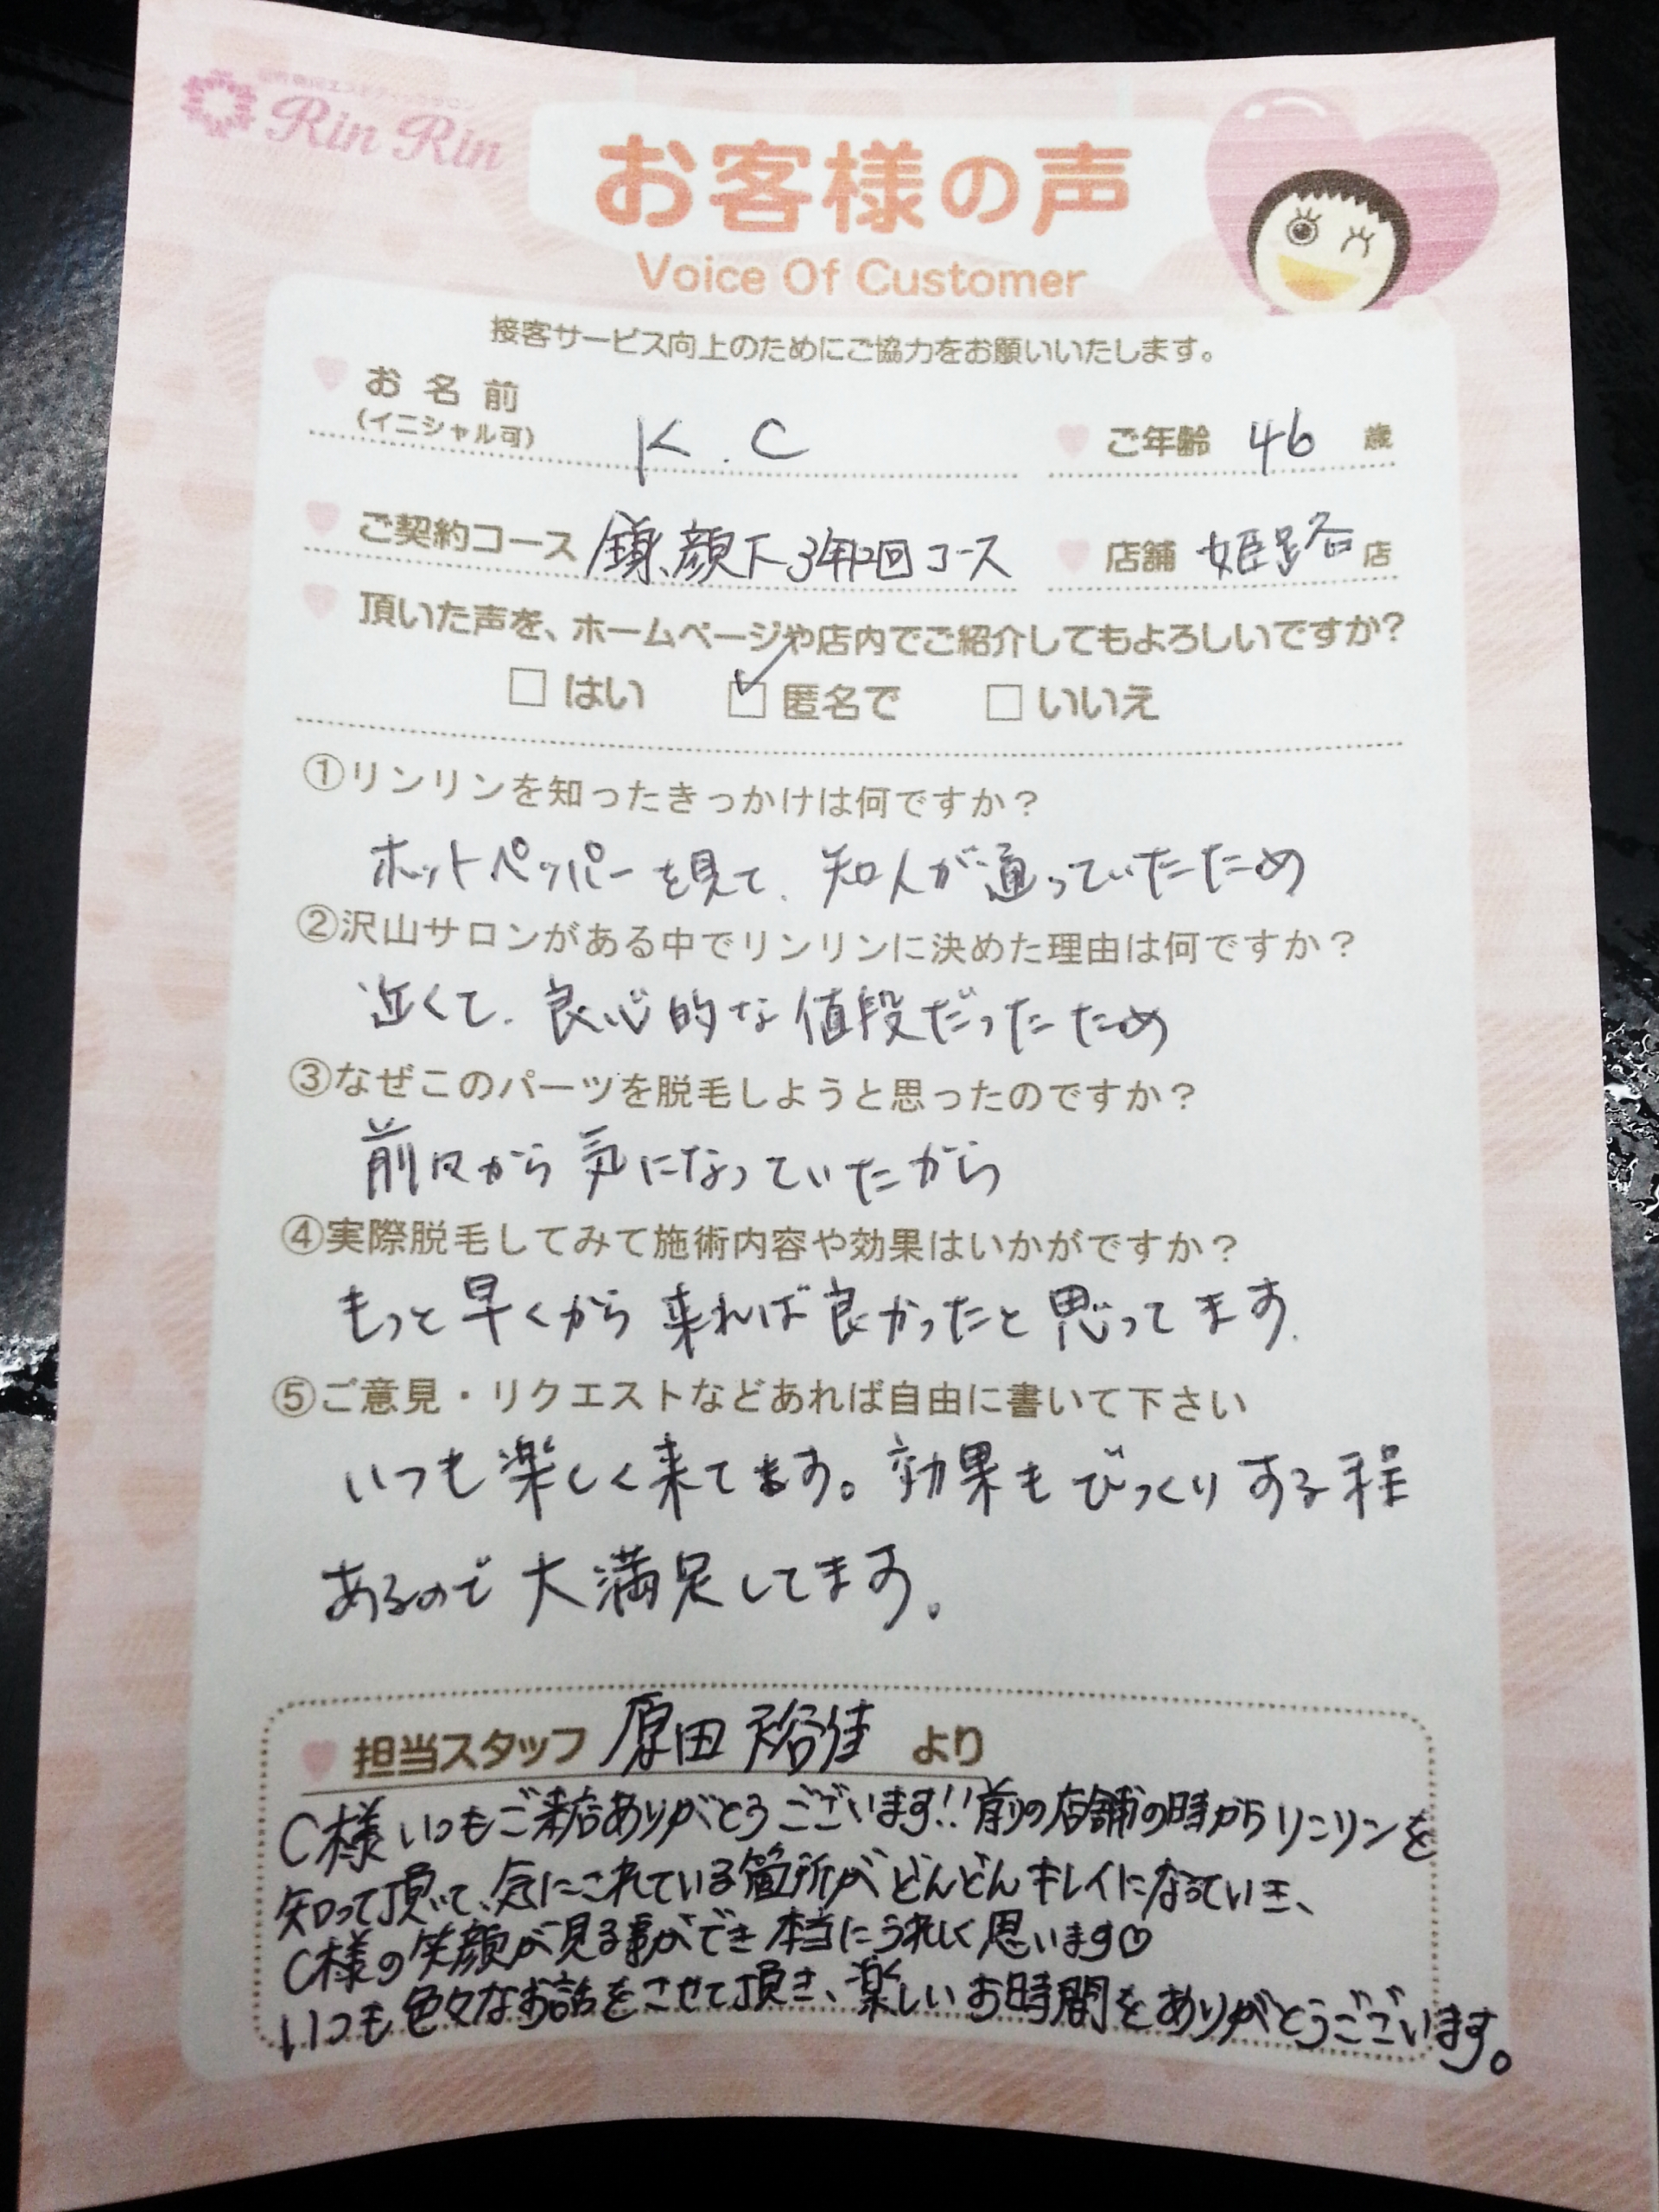 Rin Rin
お客様の声
Voice Of Customer
接客サービス向上のためにご協力をお願いいたします。
お名前 K.C ご年齢 46 歳
(イニシャル可)
ご契約コース 顔下3年12回コース 店舗 姫路 店
頂いた声を、ホームページや店内でご紹介してもよろしいですか?
□はい ☑匿名で □いいえ
①リンリンを知ったきっかけは何ですか?
ホットペッパーを見て、知人が通っていたため
②沢山サロンがある中でリンリンに決めた理由は何ですか?
近くて、良心的な値段だったため
③なぜこのパーツを脱毛しようと思ったのですか?
前々から気になっていたから
④実際脱毛してみて施術内容や効果はいかがですか?
もっと早くから来れば良かったと思ってます.
⑤ご意見・リクエストなどあれば自由に書いて下さい
いつも楽しく来てます。効果もびっくりする程
あるので大満足してます。
担当スタッフ 原田 裕佳 より
C様いつもご来店ありがとうございます!!前の店舗の時からリンリンを
知って頂いて、気にされている箇所がどんどんキレイになっていき、
C様の笑顔が見る事ができ本当にうれしく思います♡
いつも色々なお話をさせて頂き、楽しいお時間をありがとうございます。